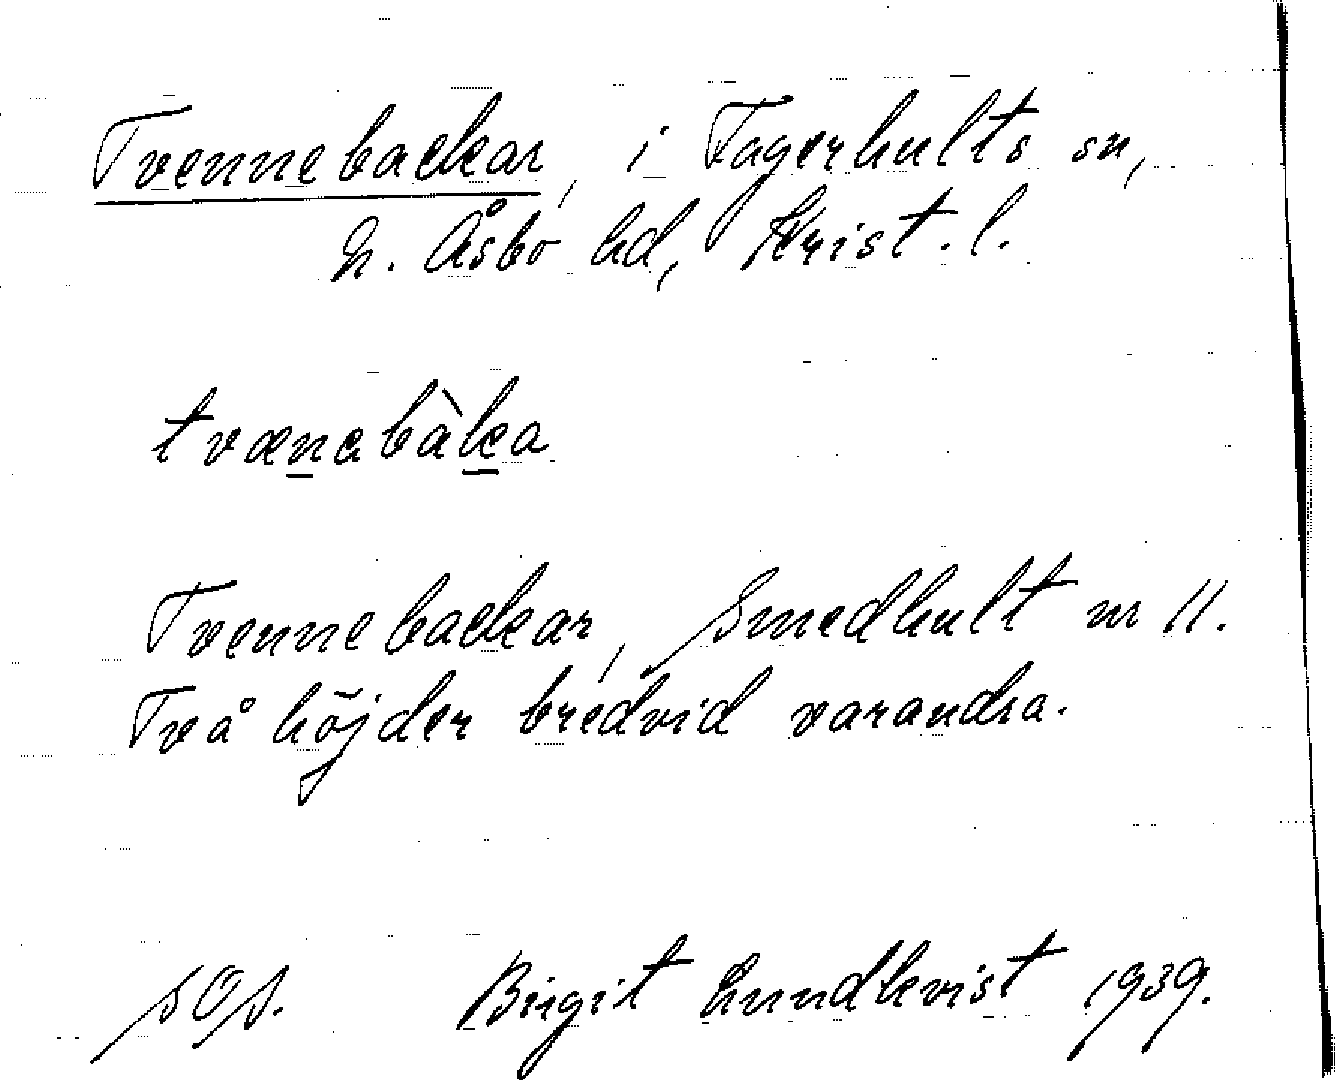 Tvennebackar, i Fagerhults sn,
N. Åsbo hd, Krist. l.
tvænabàka
Tvennebackar, Smedhult nr 11.
Två höjder bredvid varandra.
Birgit Lundkvist 1939.